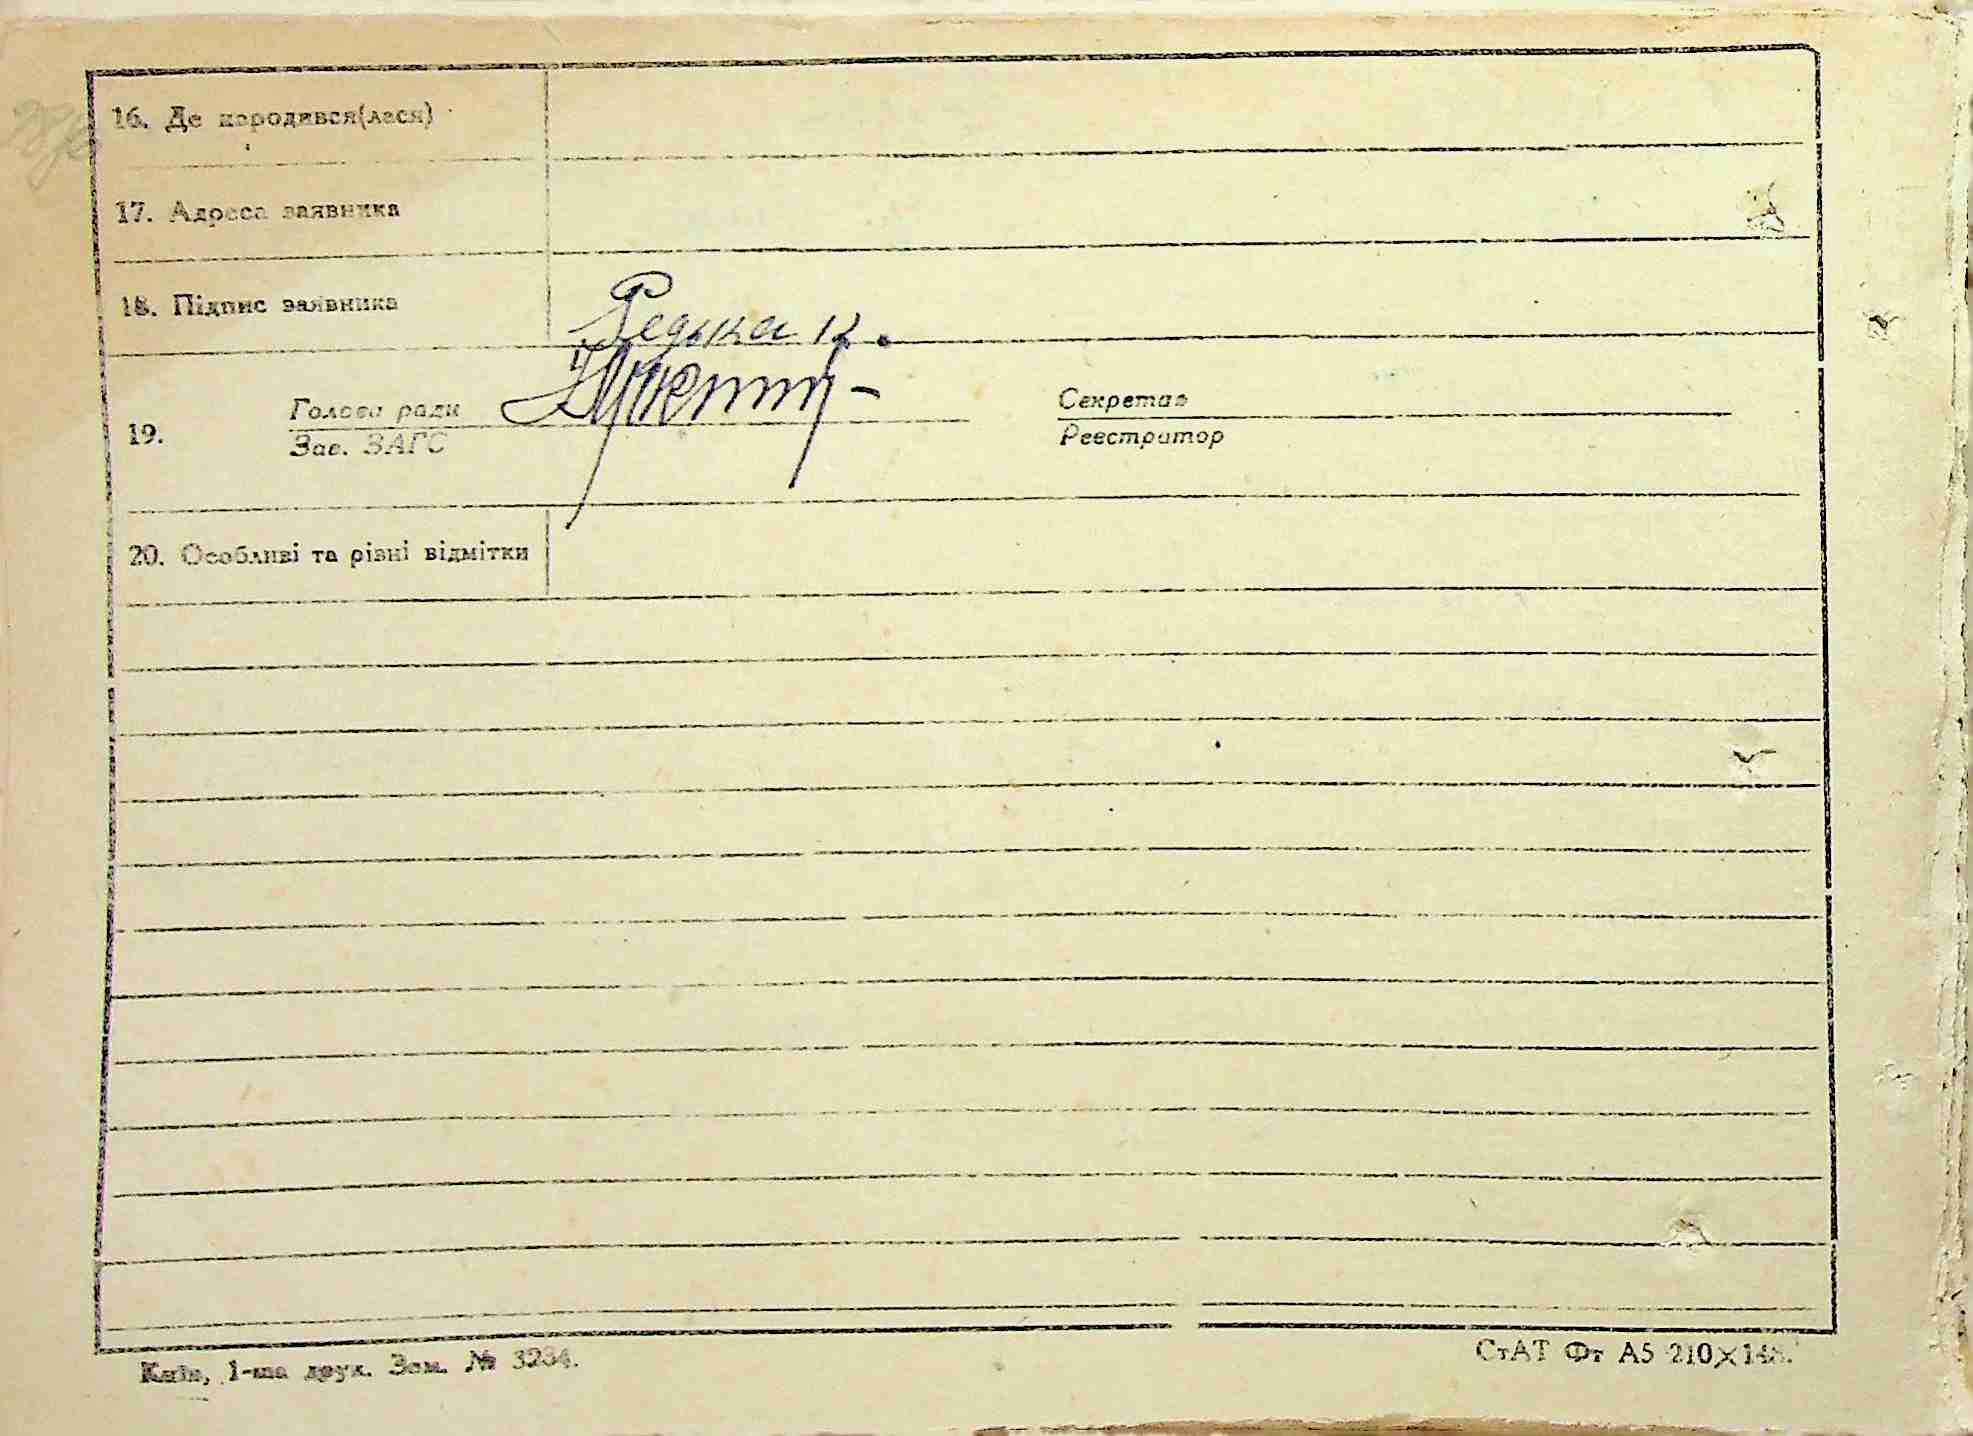 16. Де народився(лася)
17. Адреса заявника
18. Підпис заявника Редька К.
Голова ради Секретар
19.
Зав. ЗАГС Реєстратор
20. Особливі та різні відмітки
Київ, 1-ша друк. Зам. № 3234.
СтАТ Фт А5 210×148.